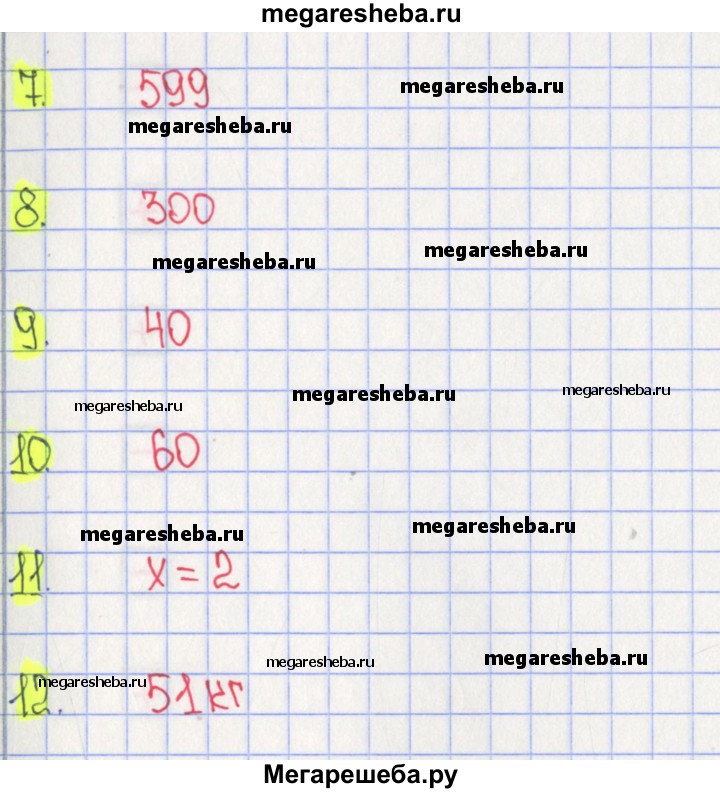 megaresheba.ru
7. 599
megaresheba.ru
megaresheba.ru
8. 300
megaresheba.ru
megaresheba.ru
9. 40
megaresheba.ru
megaresheba.ru
megaresheba.ru
10. 60
megaresheba.ru
megaresheba.ru
11. x = 2
megaresheba.ru
megaresheba.ru
12. 51 кг
megaresheba.ru
Мегарешеба.ру